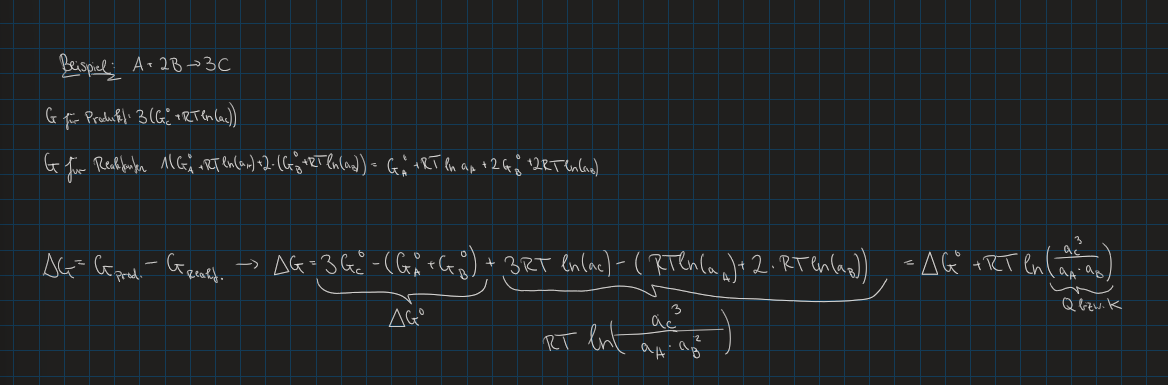 Beispiel: A + 2B → 3C
G für Produkt: 3(G_C^0 + RT ln(a_C))
G für Reaktanten 1(G_A^0 + RT ln(a_A) + 2·(G_B^0 + RT ln(a_B)) = G_A^0 + RT ln a_A + 2G_B^0 + 2RT ln(a_B)
ΔG = G_Prod. - G_Reakt. → ΔG = 3G_C^0 - (G_A^0 + G_B^0) + 3RT ln(a_C) - (RT ln(a_A) + 2·RT ln(a_B)) = ΔG^0 + RT ln(a_C^3 / (a_A · a_B))
ΔG^0
Q bzw. K
RT ln(a_C^3 / (a_A · a_B^2))